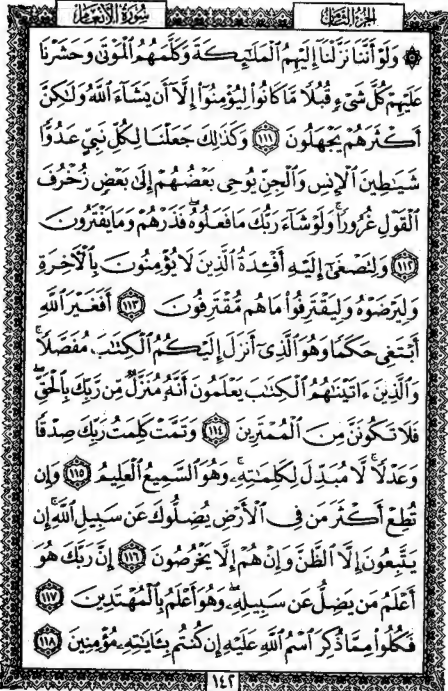 سُورَةُ الأَنْعَام الجُزْءُ الثَّامِنُ
۞ وَلَوْ أَنَّنَا نَزَّلْنَا إِلَيْهِمُ ٱلْمَلَٰٓئِكَةَ وَكَلَّمَهُمُ ٱلْمَوْتَىٰ وَحَشَرْنَا
عَلَيْهِمْ كُلَّ شَىْءٍ قُبُلًا مَّا كَانُوا۟ لِيُؤْمِنُوٓا۟ إِلَّآ أَن يَشَآءَ ٱللَّهُ وَلَٰكِنَّ
أَكْثَرَهُمْ يَجْهَلُونَ ١١١ وَكَذَٰلِكَ جَعَلْنَا لِكُلِّ نَبِىٍّ عَدُوًّا
شَيَٰطِينَ ٱلْإِنسِ وَٱلْجِنِّ يُوحِى بَعْضُهُمْ إِلَىٰ بَعْضٍ زُخْرُفَ
ٱلْقَوْلِ غُرُورًا ۚ وَلَوْ شَآءَ رَبُّكَ مَا فَعَلُوهُ ۖ فَذَرْهُمْ وَمَا يَفْتَرُونَ
١١٢ وَلِتَصْغَىٰٓ إِلَيْهِ أَفْـِٔدَةُ ٱلَّذِينَ لَا يُؤْمِنُونَ بِٱلْءَاخِرَةِ
وَلِيَرْضَوْهُ وَلِيَقْتَرِفُوا۟ مَا هُم مُّقْتَرِفُونَ ١١٣ أَفَغَيْرَ ٱللَّهِ
أَبْتَغِى حَكَمًا وَهُوَ ٱلَّذِىٓ أَنزَلَ إِلَيْكُمُ ٱلْكِتَٰبَ مُفَصَّلًا ۚ
وَٱلَّذِينَ ءَاتَيْنَٰهُمُ ٱلْكِتَٰبَ يَعْلَمُونَ أَنَّهُۥ مُنَزَّلٌ مِّن رَّبِّكَ بِٱلْحَقِّ ۖ
فَلَا تَكُونَنَّ مِنَ ٱلْمُمْتَرِينَ ١١٤ وَتَمَّتْ كَلِمَتُ رَبِّكَ صِدْقًا
وَعَدْلًا ۚ لَّا مُبَدِّلَ لِكَلِمَٰتِهِۦ ۚ وَهُوَ ٱلسَّمِيعُ ٱلْعَلِيمُ ١١٥ وَإِن
تُطِعْ أَكْثَرَ مَن فِى ٱلْأَرْضِ يُضِلُّوكَ عَن سَبِيلِ ٱللَّهِ ۚ إِن
يَتَّبِعُونَ إِلَّا ٱلظَّنَّ وَإِنْ هُمْ إِلَّا يَخْرُصُونَ ١١٦ إِنَّ رَبَّكَ هُوَ
أَعْلَمُ مَن يَضِلُّ عَن سَبِيلِهِۦ ۖ وَهُوَ أَعْلَمُ بِٱلْمُهْتَدِينَ ١١٧
فَكُلُوا۟ مِمَّا ذُكِرَ ٱسْمُ ٱللَّهِ عَلَيْهِ إِن كُنتُم بِـَٔايَٰتِهِۦ مُؤْمِنِينَ ١١٨
١٤٢